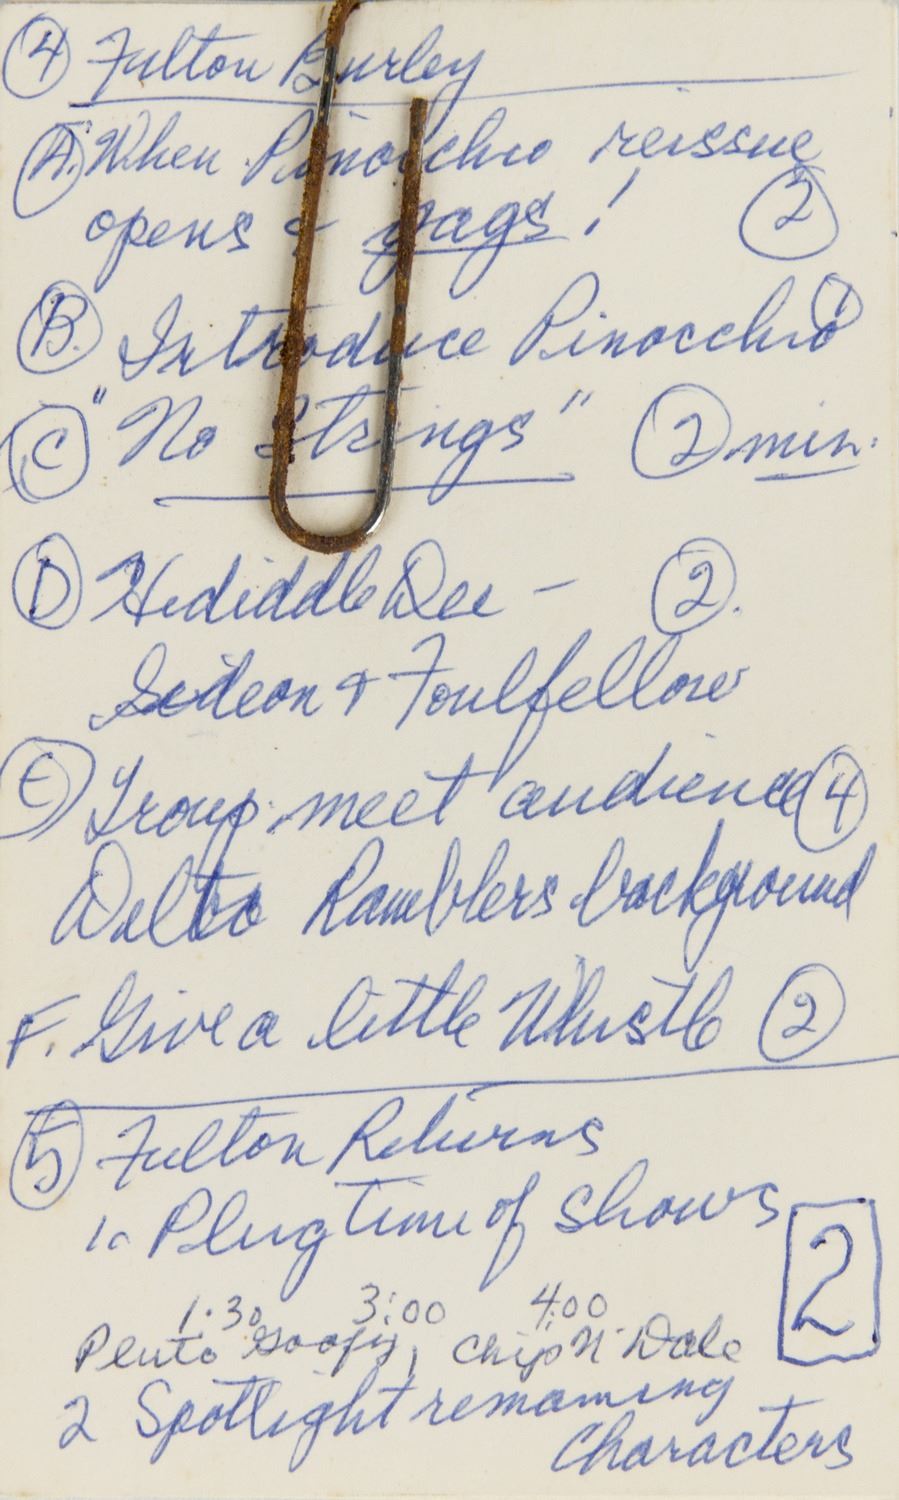 ④ Fulton Burley
Ⓐ. When Pinocchio reissue
opens & gags! ②
Ⓑ. Introduce Pinocchio ①
Ⓒ "No Strings" ② min.
Ⓓ Hi diddle Dee - ②.
Gideon & Foulfellow
Ⓔ Group meet audience ④
Delta Ramblers background
F. Give a little Whistle ②
⑤ Fulton Returns
1. Plug time of shows
1:30 3:00 4:00
Pluto Goofy, Chip N' Dale
2 Spotlight remaining
Characters
2